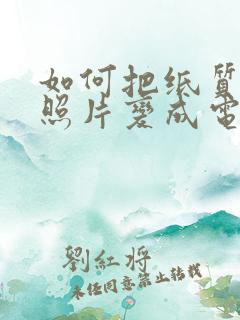 如何把纸质
照片变成電
劉紅將
未经同意禁止转载